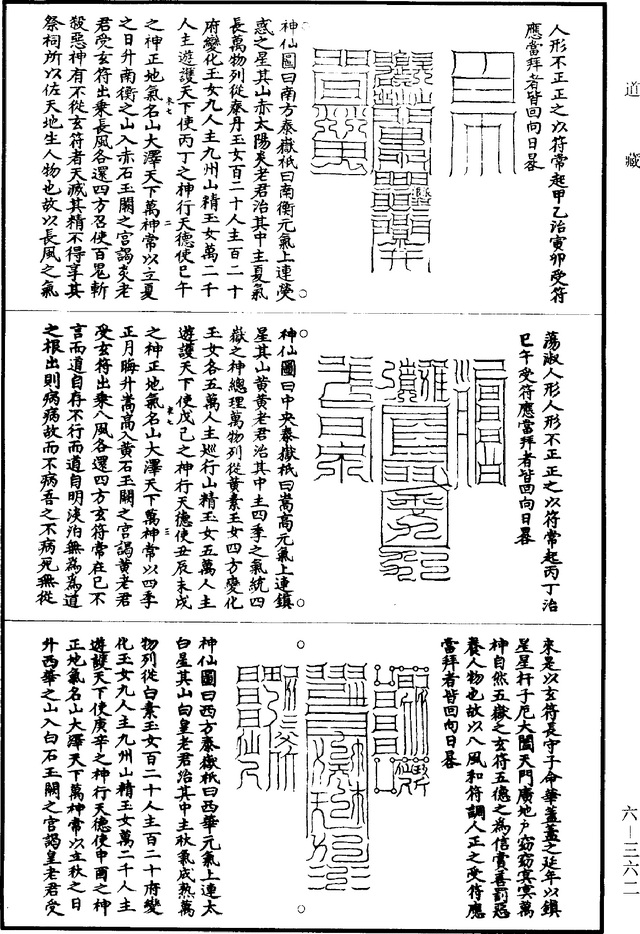 道藏
人形不正正之以符常起甲乙治寅卯受符
應當拜者皆回向日晷
神仙圖曰南方泰嶽祇曰南衡元氣上連熒
惑之星其山赤太陽炎老君治其中主夏氣
長萬物列從泰丹玉女百二十人主百二十
府變化玉女九人主九州山精玉女萬二千
人主遊護天下使丙丁之神行天德使巳午
未七 二
之神正地氣名山大澤天下萬神常以立夏
之日升南衡之山入赤石玉闕之宮謁炎老
君受玄符出乘長風各還四方召使百鬼斬
殺惡神有不從玄符者天滅其精不得享其
祭祠所以佐天地生人物也故以長風之氣
蕩淑人形人形不正正之以符常起丙丁治
巳午受符應當拜者皆回向日晷
神仙圖曰中央泰嶽祇曰嵩高元氣上連鎮
星其山黃黃老君治其中主四季之氣統四
嶽之神總理萬物列從黃素玉女四方變化
玉女各五萬人主巡行山精玉女五萬人主
遊護天下使戊己之神行天德使丑辰未戌
未七 三
之神正地氣名山大澤天下萬神常以四季
正月晦升嵩高入黃石玉闕之宮謁黃老君
受玄符出乘八風各還四方玄符常在已不
言而道自存不行而道自明淡泊無為為道
之根出則病病故而不病吾之不病死無從
來是以玄符長守子命華蓋蓋之延年以鎮
星星杆子厄大闔天門廣地戶窈窈冥冥萬
神自然五嶽之玄符五德之為信賞善罰惡
養人物也故以八風和符調人正之受符應
當拜者皆回向日晷
神仙圖曰西方泰嶽祇曰西華元氣上連太
白星其山白皇老君治其中主秋氣成熟萬
物列從白素玉女百二十人主百二十府變
化玉女九人主九州山精玉女萬二千人主
遊護天下使庚辛之神行天德使申酉之神
正地氣名山大澤天下萬神常以立秋之日
升西華之山入白石玉闕之宮謁皇老君受
六—三六二